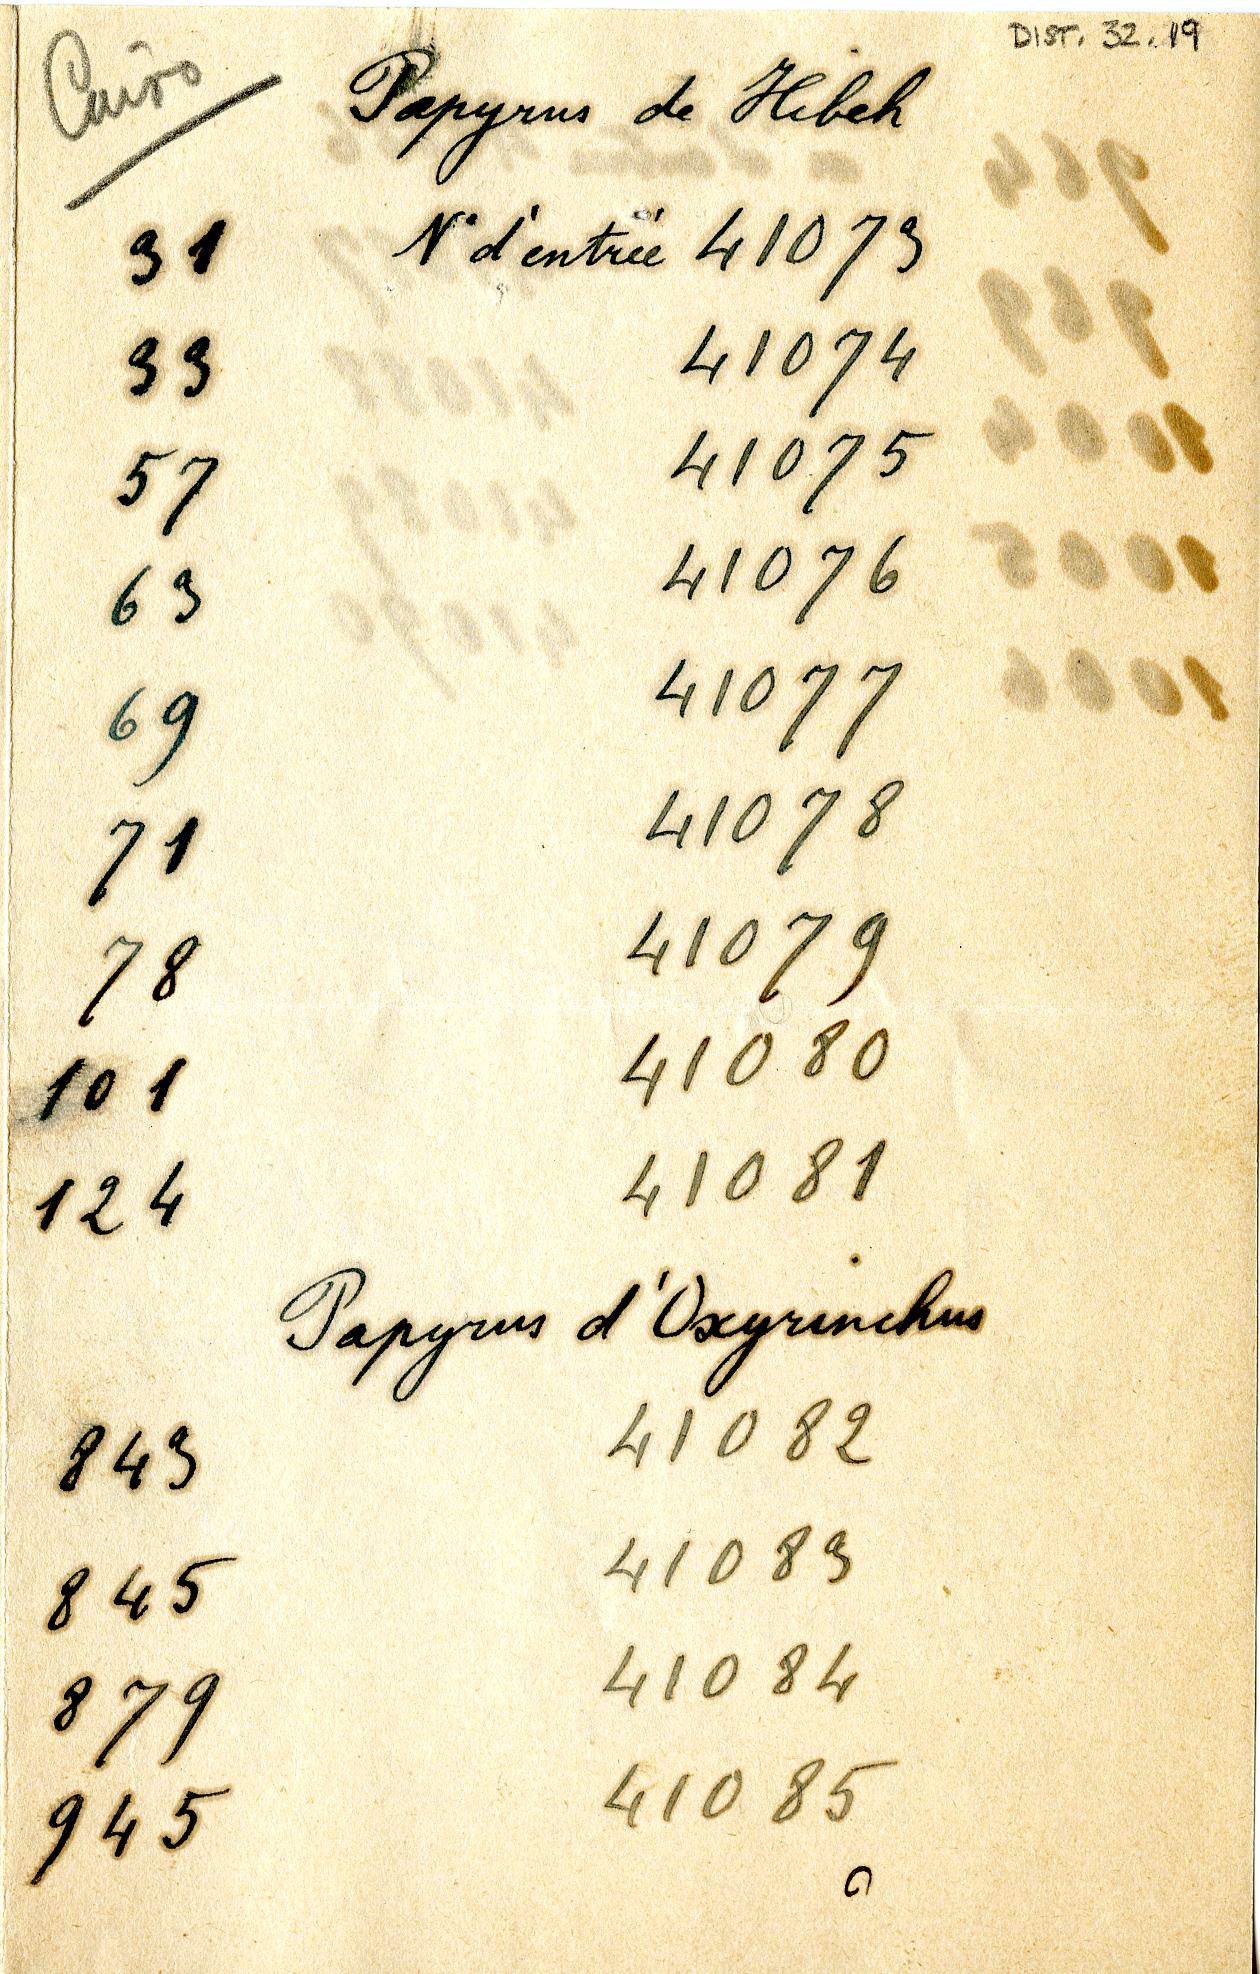 DIST. 32.19
Cairo
Papyrus de Hibeh
31 N° d'entrée 41073
33 41074
57 41075
63 41076
69 41077
71 41078
78 41079
101 41080
124 41081
Papyrus d'Oxyrinchus
843 41082
845 41083
879 41084
945 41085